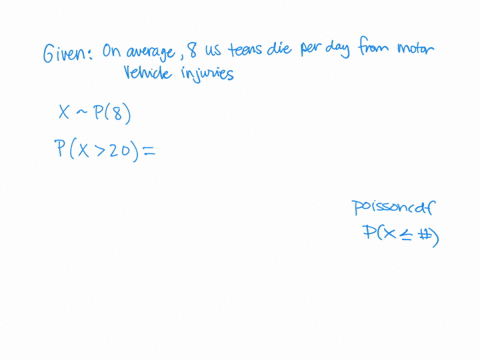 Given: On average, 8 us teens die per day from motor
vehicle injuries
X ~ P(8)
P(X > 20) =
poissoncdf
P(X ≤ #)